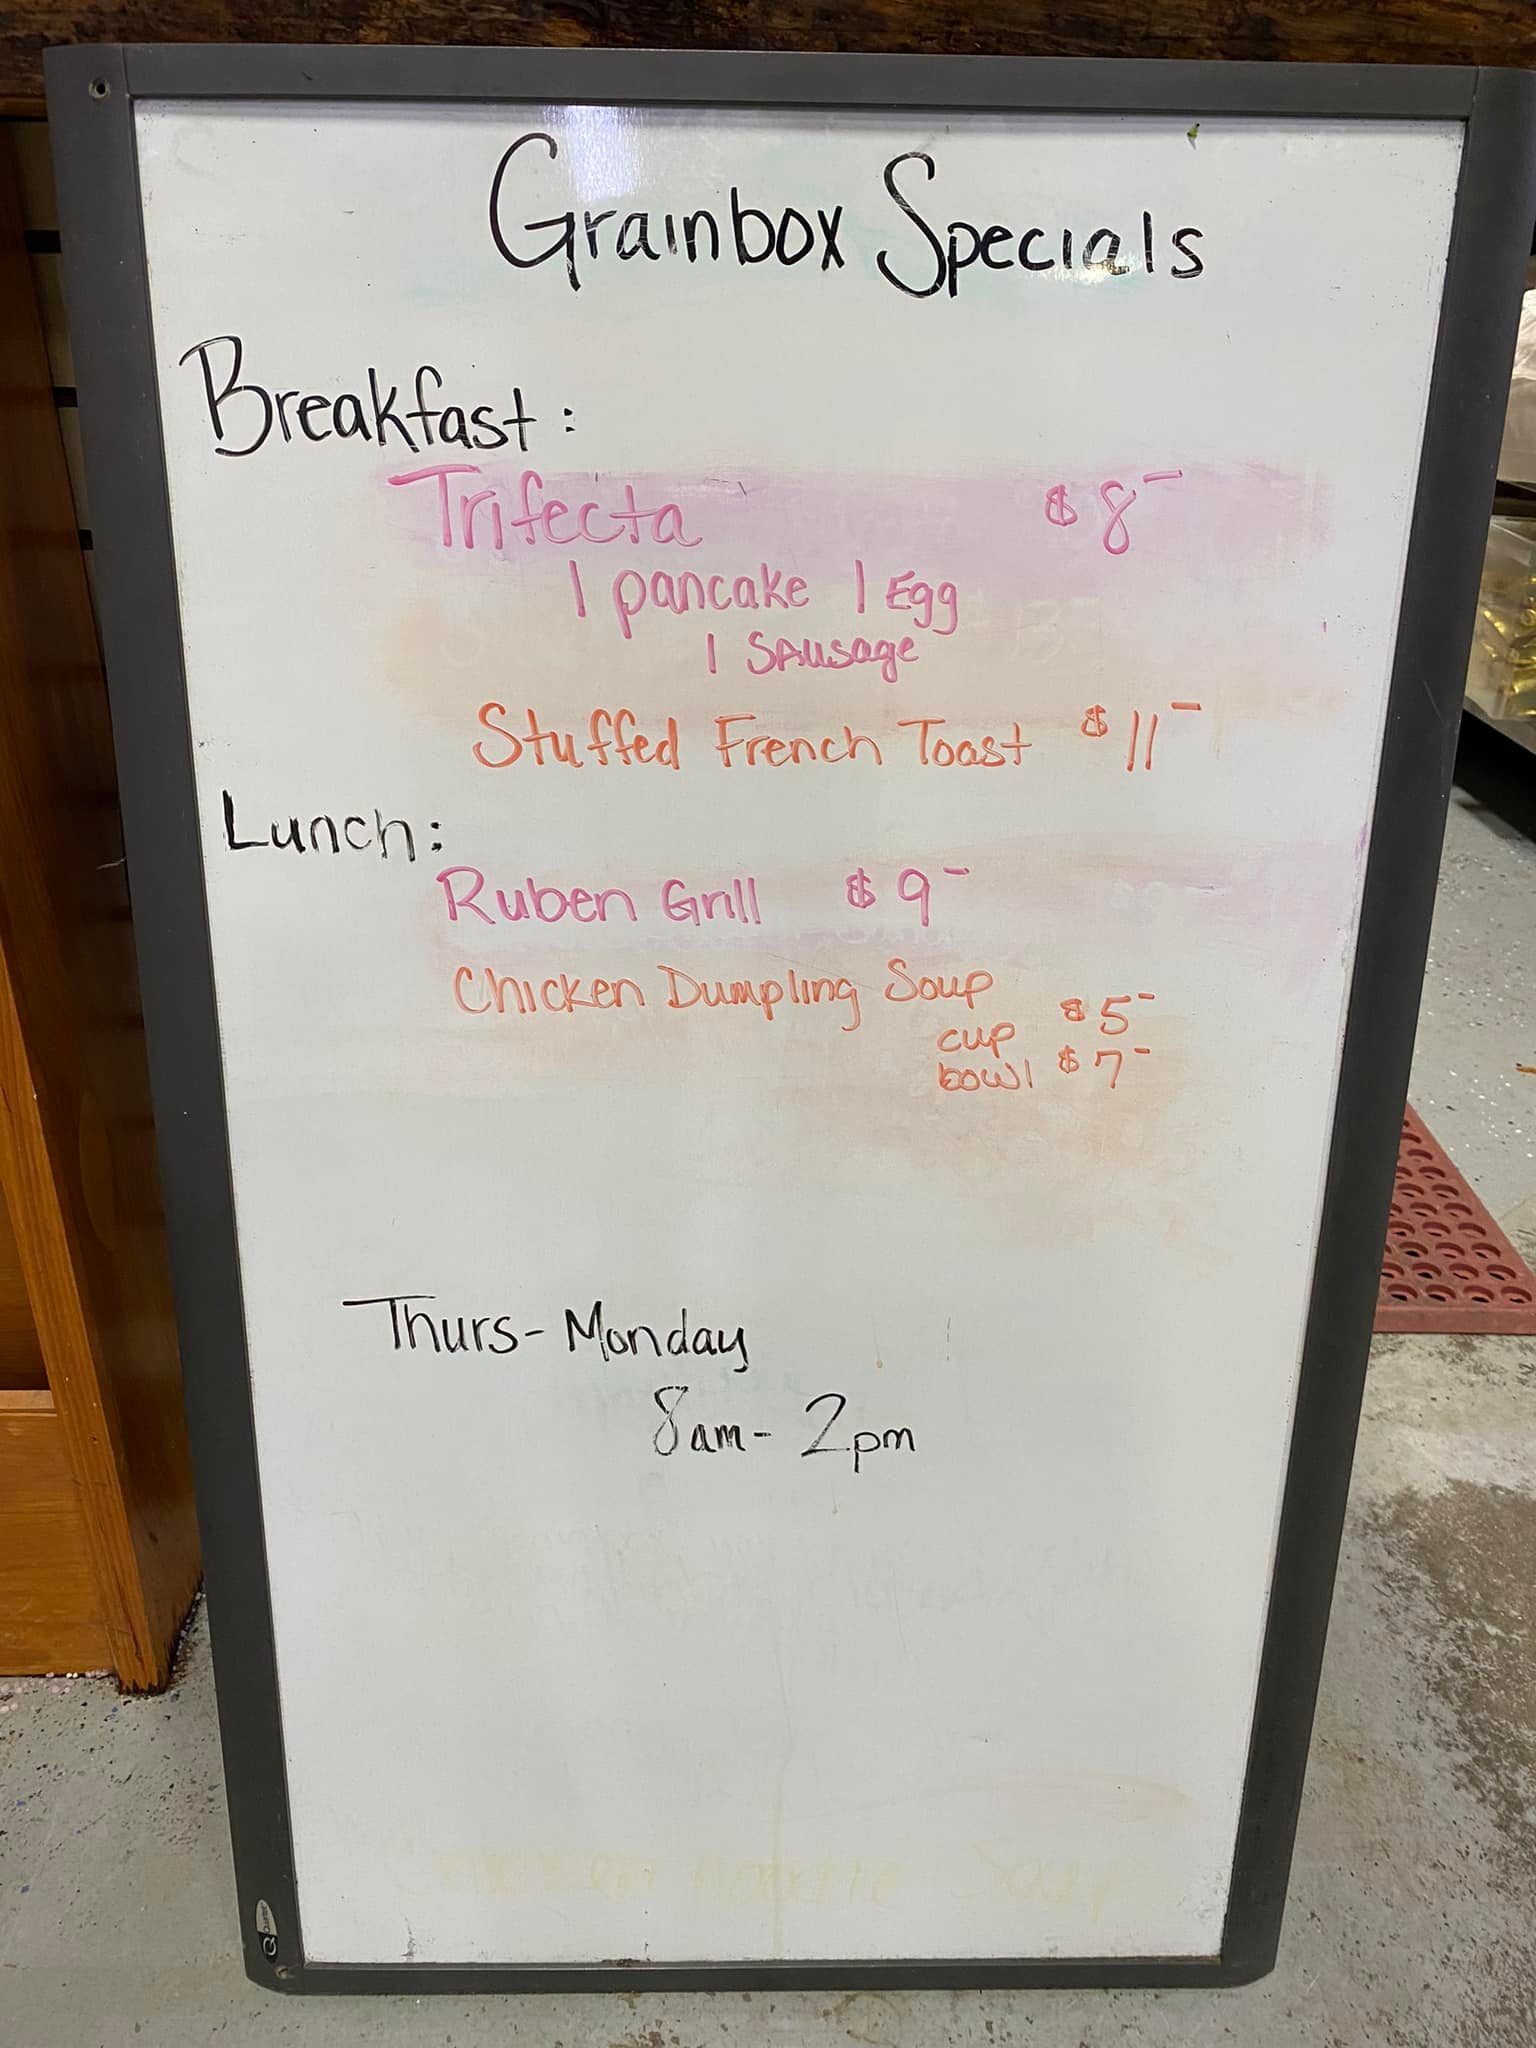 Grainbox Specials
Breakfast:
Trifecta $8-
1 pancake 1 Egg
1 Sausage
Stuffed French Toast $11-
Lunch:
Ruben Grill $9-
Chicken Dumpling Soup
cup $5-
bowl $7-
Thurs-Monday
8am-2pm
Quartet